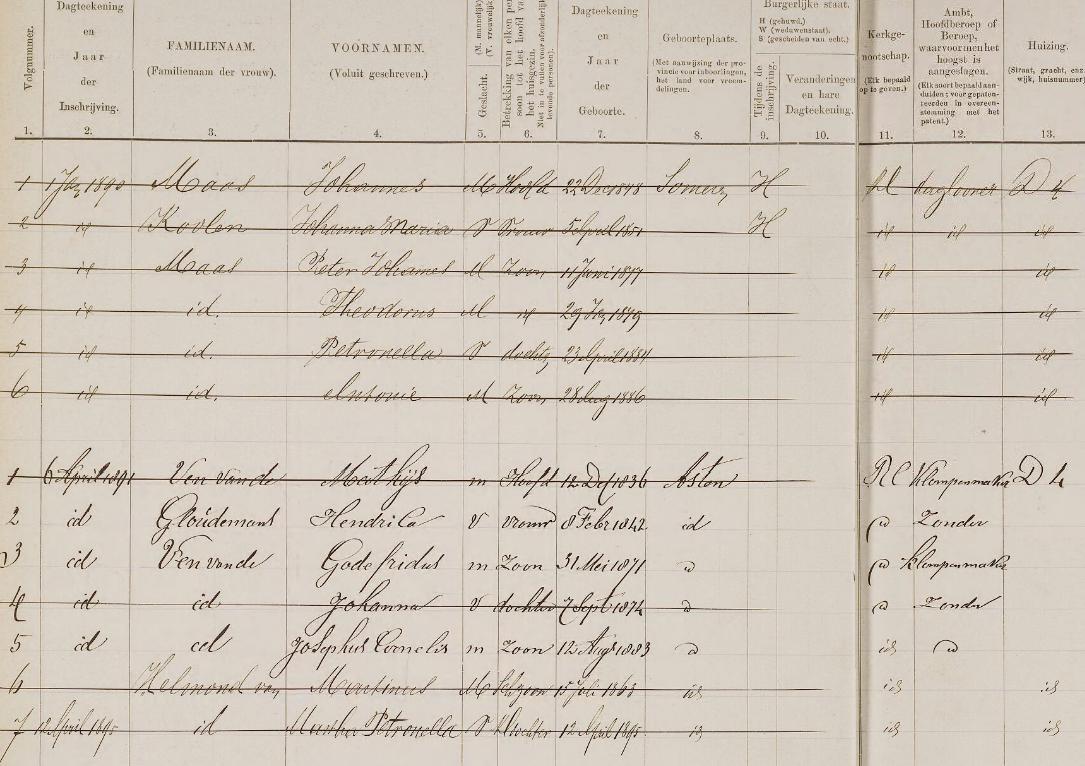 Volgnummer.
Dagteekening en Jaar der Inschrijving.
FAMILIENAAM. (Familienaam der vrouw).
VOORNAMEN. (Voluit geschreven.)
Geslacht. (M. mannelijk) (V. vrouwelijk)
Betrekking van elken persoon tot het hoofd van het huisgezin. Niet in te vullen voor afzonderlijk levende personen.
Dagteekening en Jaar der Geboorte.
Geboorteplaats. (Met aanwijzing der provincie voor inboorlingen, het land voor vreemdelingen.
Burgerlijke staat. H (gehuwd.) W (weduwenstaat). S (gescheiden van echt.)
Tijdens de inschrijving.
Veranderingen en hare Dagteekening.
Kerkgenootschap. (Elk bepaald op te geven.)
Ambt, Hoofdberoep of Beroep, waarvoor men het hoogst is aangeslagen. (Elk soort bepaald aanduiden; voor gepatenteerden in overeenstemming met het patent.)
Huizing. (Straat, gracht, enz. wijk, huisnummer)
1. 2. 3. 4. 5. 6. 7. 8. 9. 10. 11. 12. 13.
1 1 Jan 1890 Maas Johannes M Hoofd 22 Dec 1848 Someren H daglooner D 4
2 id Koolen Johanna Maria V Vrouw 5 April 1851 H id id id
3 id Maas Peter Johannes M Zoon 11 Juni 1877 id id
4 id id. Theodorus M id 29 Jan 1879 id id
5 id id. Petronella V dochter 23 April 1884 id id
6 id id. Antonie M Zoon 28 Aug 1886 id id
1 6 April 1891 Ven van de Mathijs m Hoofd 12 Dec 1836 Asten RC Klompenmaker D 4
2 id Gloudemans Hendrica V vrouw 8 Febr 1842 id id Zonder
3 id Ven van de Godefridus m Zoon 31 Mei 1871 id id klompenmaker
4 id id Johanna V dochter 7 Sept 1874 id id Zonder
5 id id Josephus Cornelis m Zoon 12 Aug 1883 id id id
6 Helmond van Martinus M 15 Juli 1863 id id id
7 12 April 1895 id Petronella V 12 April 1895 id id id